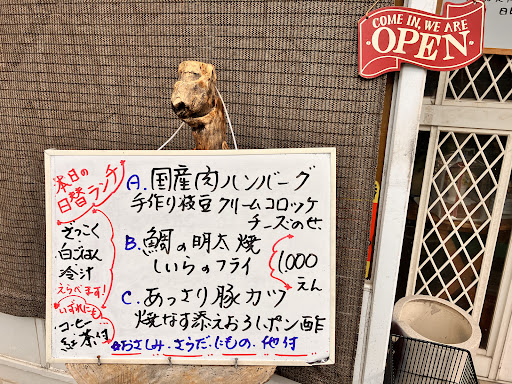 COME IN, WE ARE
OPEN
本日の
日替ランチ
ざっこく
白ごはん
冷汁
えらべます!
いずれにも
コーヒー
紅茶付
A. 国産肉ハンバーグ
手作り枝豆クリームコロッケ
チーズのせ
B. 鯛の明太焼
しいらのフライ
1000
えん
C. あっさり豚カツ
焼なす添えおろしポン酢
☆おさしみ・さらだ・にもの・他付